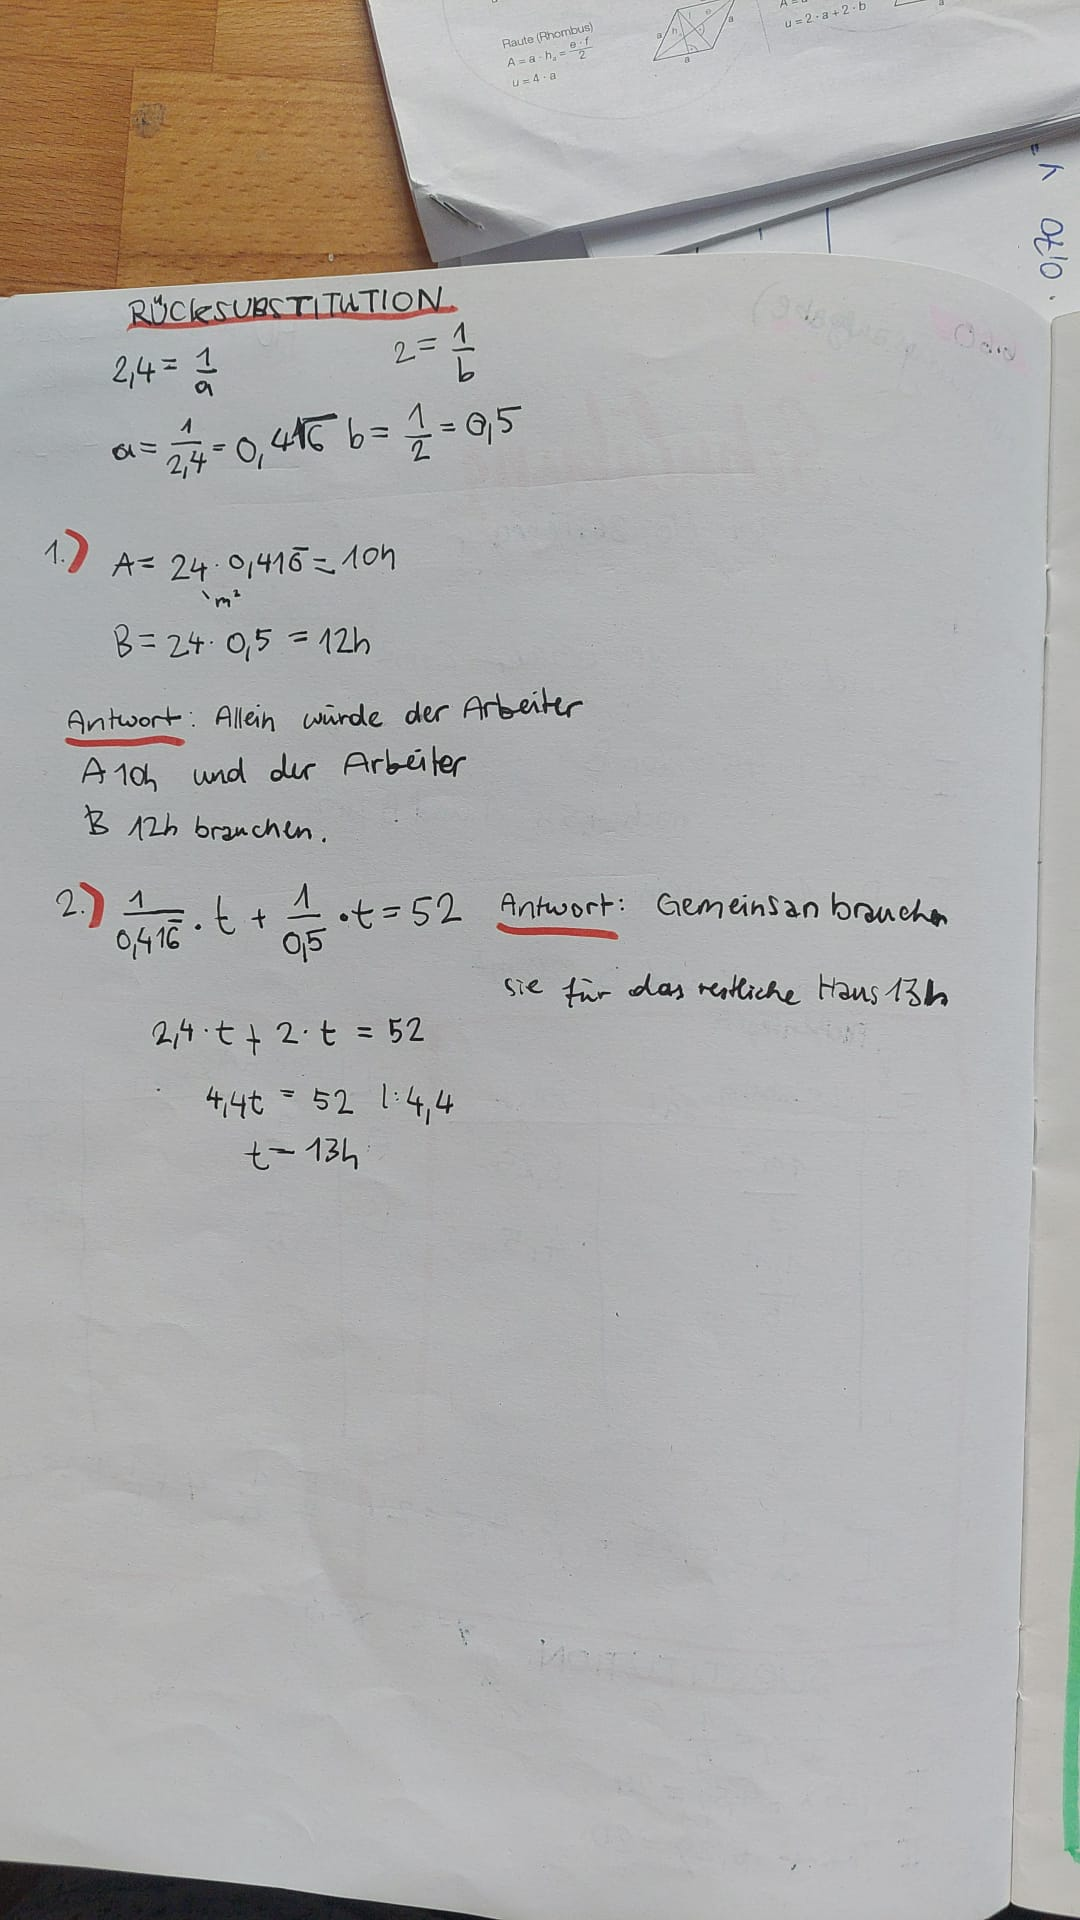 Raute (Rhombus)
A = a · hₐ = e · f / 2
u = 4 · a
u = 2 · a + 2 · b
RÜCKSUBSTITUTION
2,4 = 1/a 2 = 1/b
a = 1/2,4 = 0,416̅ b = 1/2 = 0,5
1.) A = 24 · 0,416̅ = 10h
m²
B = 24 · 0,5 = 12h
Antwort: Allein würde der Arbeiter
A 10h und der Arbeiter
B 12h brauchen.
2.) 1/0,416̅ · t + 1/0,5 · t = 52 Antwort: Gemeinsan brauchen
sie für das restliche Haus 13h
2,4 · t + 2 · t = 52
4,4t = 52 |: 4,4
t = 13h